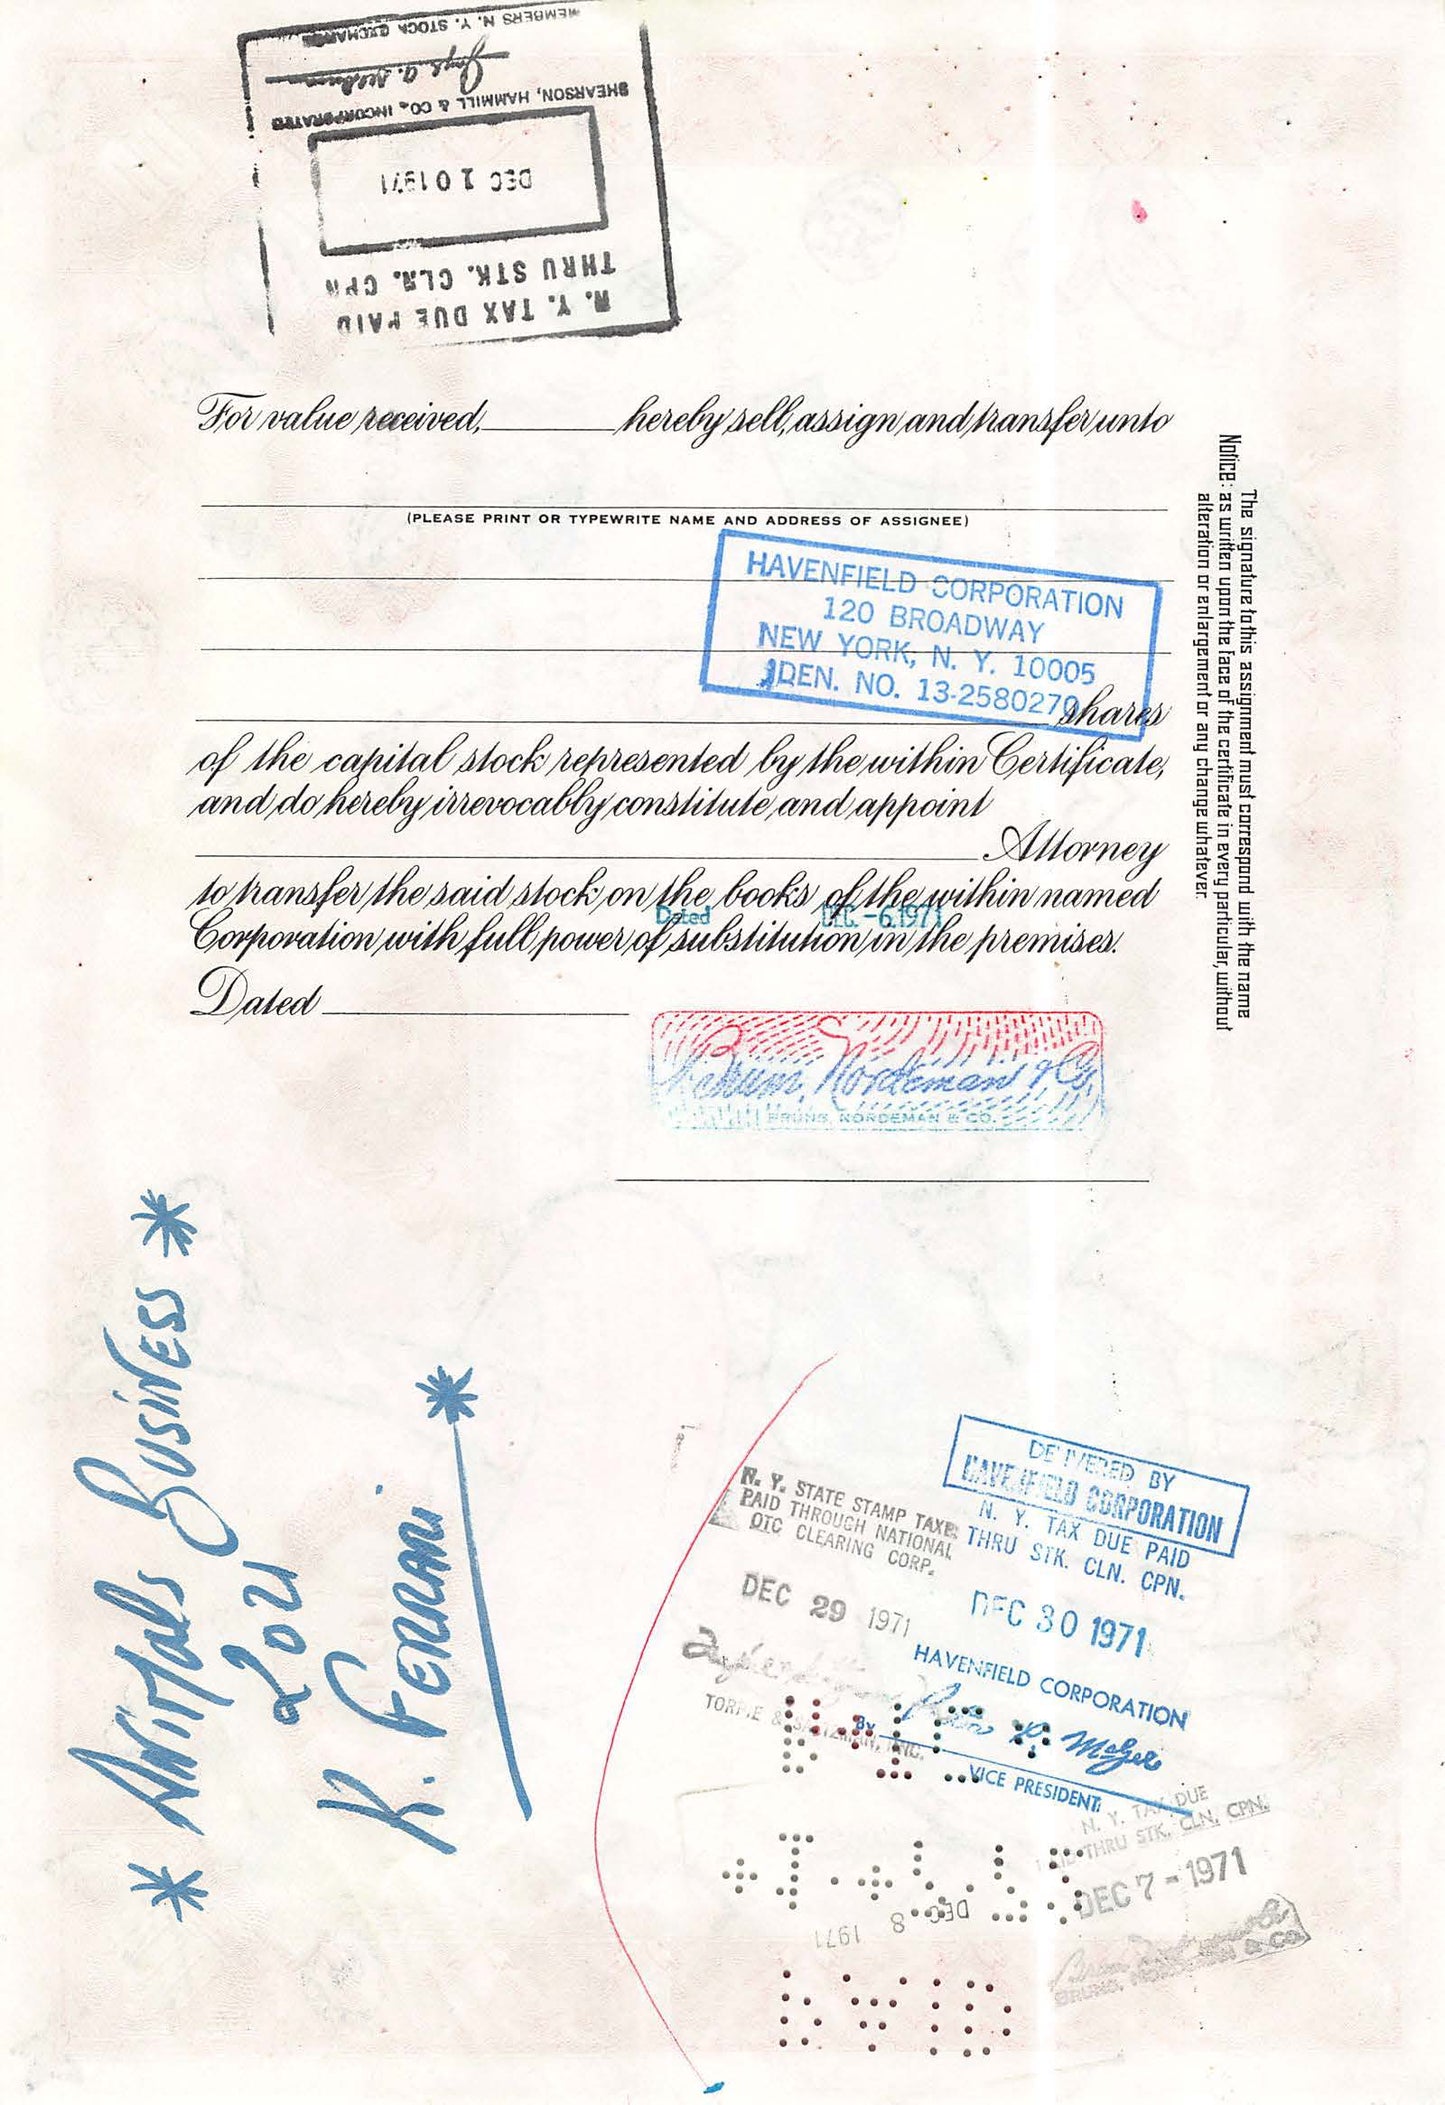 MEMBERS N. Y. STOCK EXCHANGE
SHEARSON, HAMMILL & CO., INCORPORATED
DEC 10 1971
THRU STK. CLR. CPN
N. Y. TAX DUE PAID
For value received, hereby sell, assign and transfer unto
(PLEASE PRINT OR TYPEWRITE NAME AND ADDRESS OF ASSIGNEE)
HAVENFIELD CORPORATION
120 BROADWAY
NEW YORK, N. Y. 10005
IDEN. NO. 13-2580270
shares
of the capital stock represented by the within Certificate,
and do hereby irrevocably constitute and appoint
Attorney
to transfer the said stock on the books of the within named
Dated DEC.-6.1971
Corporation with full power of substitution in the premises.
Dated
Notice: The signature to this assignment must correspond with the name
as written upon the face of the certificate in every particular, without
alteration or enlargement or any change whatever.
Bruns, Nordeman & Co.
BRUNS, NORDEMAN & CO.
* Business *
2021
K. FERRARI *
DELIVERED BY
HAVENFIELD CORPORATION
N. Y. TAX DUE PAID
THRU STK. CLN. CPN.
DEC 30 1971
HAVENFIELD CORPORATION
By
VICE PRESIDENT
N. Y. STATE STAMP TAXES
PAID THROUGH NATIONAL
OTC CLEARING CORP.
DEC 29 1971
TORPIE & SALTZMAN, INC.
N. Y. TAX DUE
PAID THRU STK. CLN. CPN.
DEC 7-1971
DEC 8 1971
BRUNS, NORDEMAN & CO.
PAID